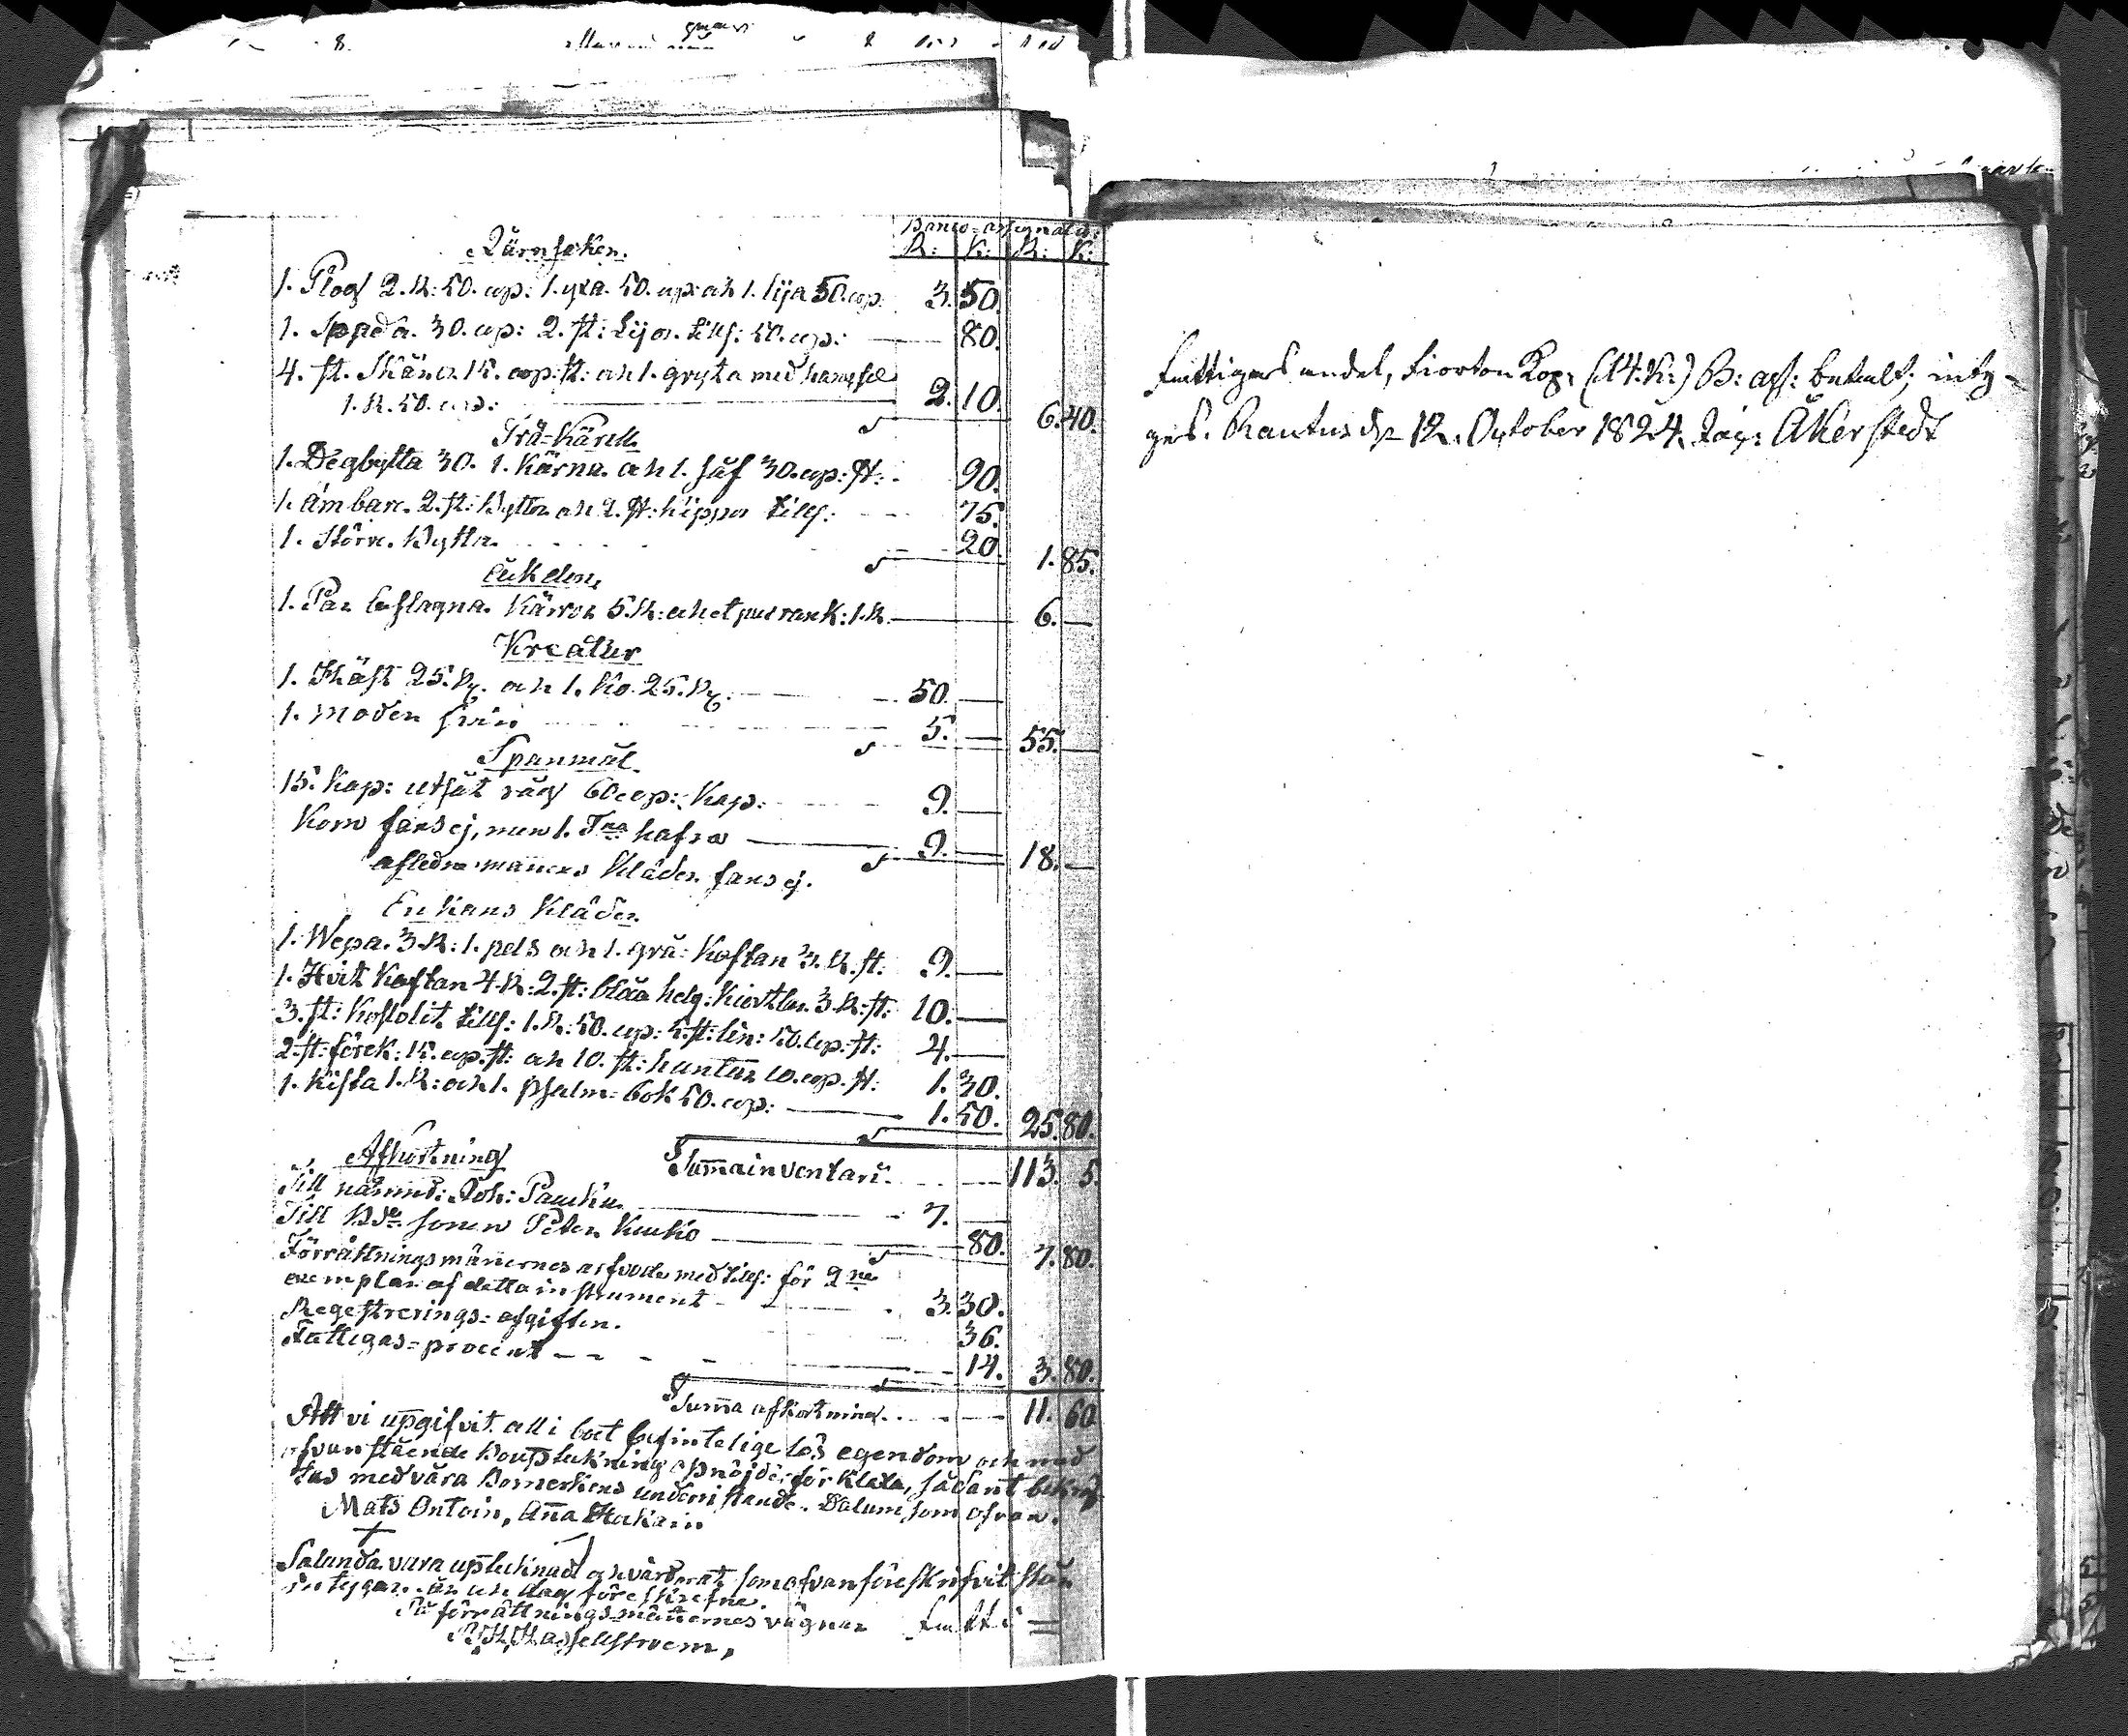 Banco-assignatio:
R: K: R: K:
Järnsaken.
1. Plog 2. R: 50. cop: 1. yxa. 50. cop: och 1. lija 50. cop. 3. 50.
1. Spada. 30. cop: 2. st: Lijor. tills: 50. cop: 80.
4. st. Skäror 15. cop: st: och 1. gryta med hank
1. R. 50. cop: 2. 10. 6. 40.
Trä-Käril.
1. Degbytta 30. 1. Kärna. och 1. såf 30. cop: st: 90.
1. ämbare. 2. st: Bytter och 2. st: kippor tills: 75.
1. Större. Bytta. 20. 1. 85.
Åkdon.
1. Par beslagna. Kärror 5. R: och et par rank: 1. R. 6.
Kreatur
1. Häst 25. R. och 1. Ko. 25. R. 50.
1. moder svin 5. 55.
Spanmål.
15. Kap: utsåt råg 60 cop: Kap: 9.
Korn fans ej, men 1. Tna hafra 9. 18.
afledne mannens Kläder fans ej.
Enkans Kläder
1. Wepa. 3. R: 1. pels och 1. grå: Kaftan 3. R. st. 9.
1. Hvit Kaftan 4. R: 2. st: blåa helg: Kiortlar. 3 R: st: 10.
3. st: Kostolit. tills: 1. R: 50. cop: 5. st: lin: 50. cop: st: 4.
2. st: förck: 15. cop. st: och 10. st: huntur 10. cop. st: 1. 30.
1. Kista 1. R: och 1. psalm-bok 50. cop: 1. 50. 25. 80.
Summa inventarii. 113. 5.
Afkortning
Till nämnd: Joh: Paukku. 7.
Till Bde sonen Peter Kuuko 80. 7. 80.
Förrättningsmännernes arfvode med tills: för 2ne
exemplar af detta instrument 3. 30.
Regestrerings-afgiften. 36.
Fattigas-procent 14. 3. 80.
Summa afkortning. 11. 60
Att vi upgifvit all i boet befintelige lös egendom och med
ofvanstående bouptekning opnöjde förklara, sådant bekräf
tas med våra Bomerkens underristande. Datum, som ofvan.
Mats Ontoin, Anna Huukain
Salunda vara uptecknad och värderat som ofvan föreskrifvit står
intygar. år och dag föreskrefne.
På förrättningsmännernes vägnar
Hasselstroem,
Fattigas andel, Fiorton Kop: (14. K:) B: ass: betalt, inty-
gas. Rautus d. 12. October 1824. Åkerstedt